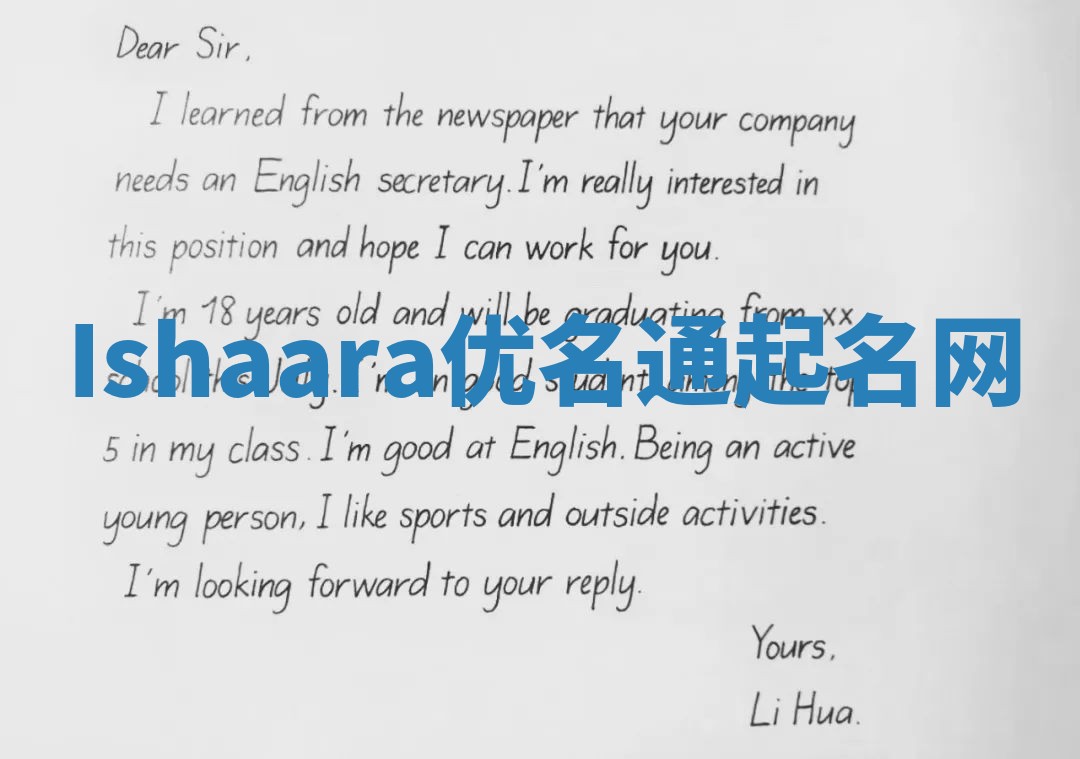 Dear Sir,
I learned from the newspaper that your company
needs an English secretary. I'm really interested in
this position and hope I can work for you.
I'm 18 years old and will be graduating from xx
Ishaara优名通起名网
school this July. I'm good student among the top
5 in my class. I'm good at English. Being an active
young person, I like sports and outside activities.
I'm looking forward to your reply.
Yours,
Li Hua.